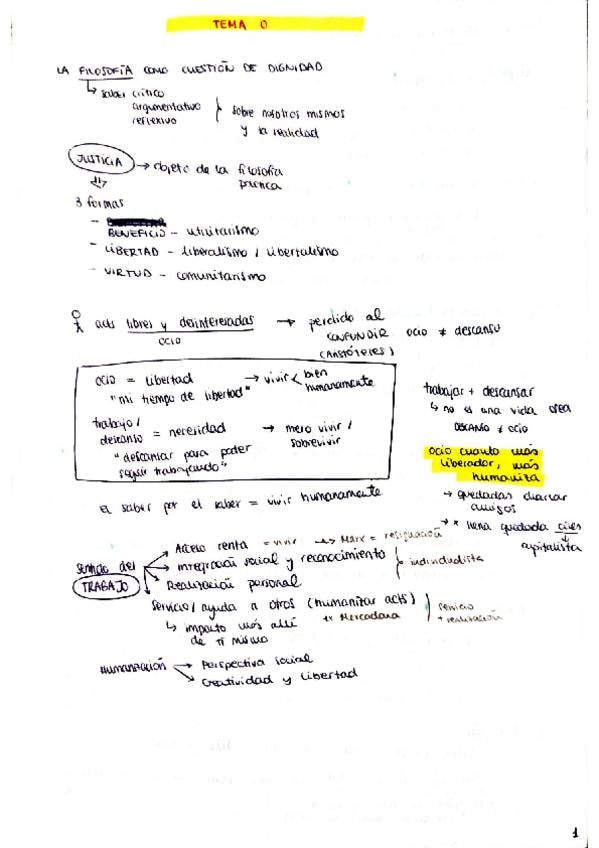 TEMA 0
LA FILOSOFÍA COMO CUESTIÓN DE DIGNIDAD
saber crítico
argumentativo
reflexivo
sobre nosotros mismos
y la realidad
JUSTICIA → objeto de la filosofía
práctica
3 formas
- BENEFICIO - utilitarismo
- LIBERTAD - liberalismo / libertalismo
- VIRTUD - comunitarismo
acts libres y desinteresadas → perdido al
OCIO
CONFUNDIR ocio ≠ descanso
(ARISTÓTELES)
ocio = libertad → vivir < bien
humanamente
"mi tiempo de libertad"
trabajo /
descanso = necesidad → mero vivir /
sobrevivir
"descansar para poder
seguir trabajando"
trabajar + descansar
↳ no es una vida
DESCANSO ≠ OCIO
ocio cuanto más
liberador, más
humaniza
→ quedadas charlar
amigos
→ * quedada
capitalista
El saber por el saber = vivir humanamente
Sentido del
TRABAJO
Acceso renta = vivir → Marx = resignación
Integración social y reconocimiento
Realización personal
individualista
Servicio / ayuda a otros (humanizar acts)
↳ impacto más allá
de ti mismo
servicio
+ realización
Humanización → Perspectiva social
→ Creatividad y libertad
1